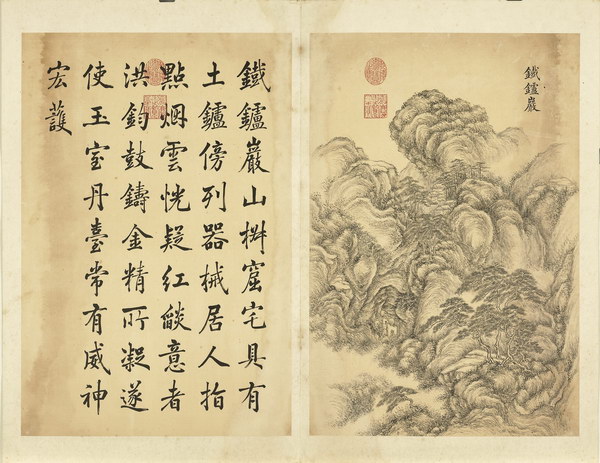 鐵鑪巖
鐵鑪巖山窟宅具有
土鑪傍列器械居人指
點烟雲恍疑紅燄意者
洪鈞鼓鑄金精所凝遂
使玉室丹臺常有威神
宏護